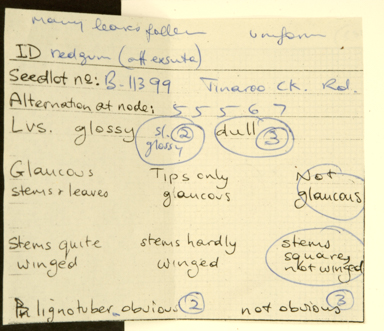 Many leaves fallen uniform
ID redgum (aff exserta)
Seedlot no: B-11399 Tinaroo Ck. Rd.
Alternation at node: 5 5 5 6 7
Lvs. glossy sl. glossy 2 dull 3
Glaucous Tips only Not
stems & leaves glaucous glaucous
Stems quite stems hardly stems
winged winged square,
not winged
lignotuber obvious 2 not obvious 3